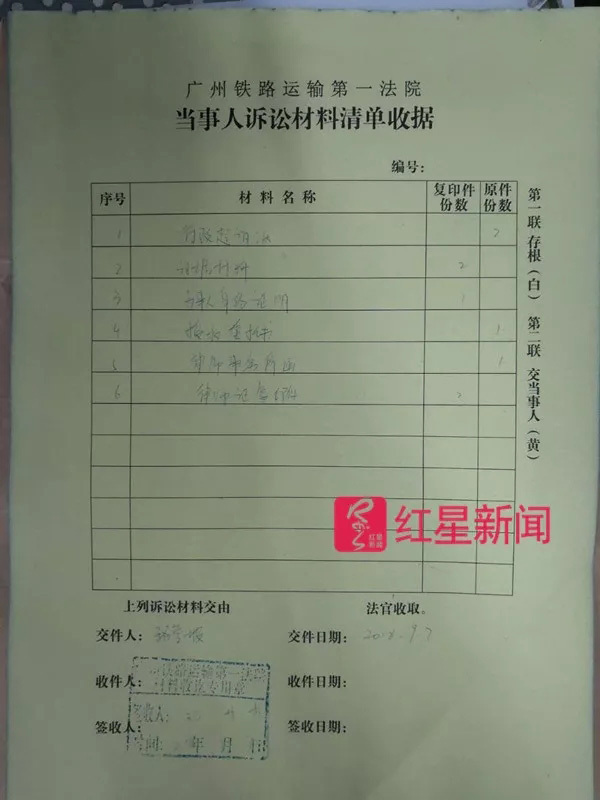 广州铁路运输第一法院
当事人诉讼材料清单收据
编号：
序号 材料名称 复印件份数 原件份数
1 行政起诉状 2
2 证据材料 2
3 1
4 授权委托书 1
5 律师事务所函 1
6 律师证复印件
第一联 存根（白） 第二联 交当事人（黄）
红星新闻
红星新闻
上列诉讼材料交由 法官收取。
交件人： 交件日期：
收件人： 收件日期：
签收人： 签收日期：
铁路运输第一法院
材料收取专用章
签收人：
时间： 年 月 日